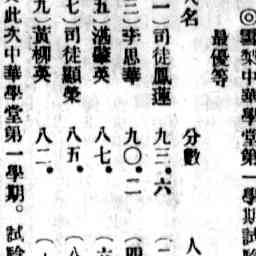 ◎雪梨中華學堂第一學期試
最優等
人名　分數　人
一）司徒鳳蓮　九三.六（二
三）李思華　九〇.二（四
五）湛肇英　八七.（六
七）司徒顯榮　八五.（八
九）黃柳英　八二.（
此次中華學堂第一學期。試驗